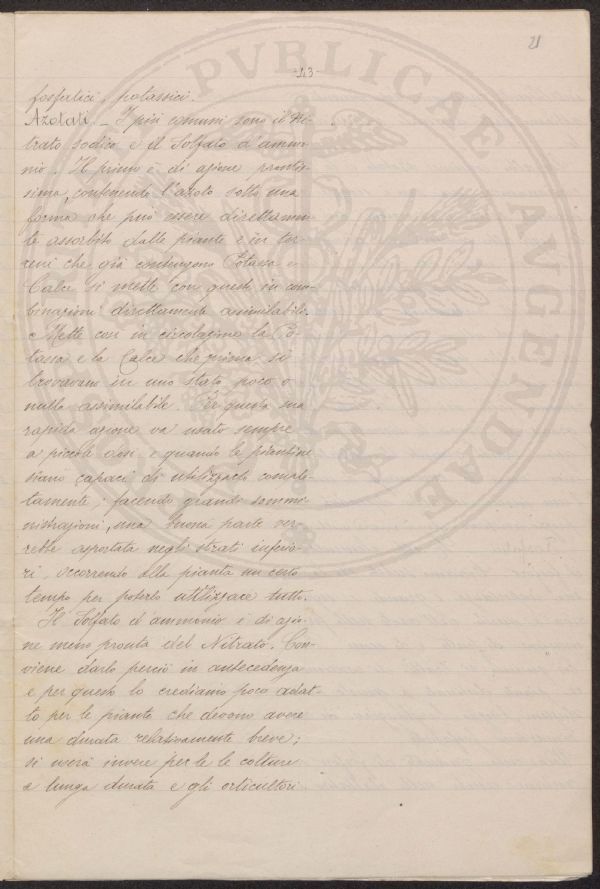 21
-43-
fosfatici, potassici.
Azotati. - I più comuni sono il Ni-
trato sodico e il Solfato d'ammo-
nio. Il primo è di azione prontis-
sima, contenendo l'azoto sotto una
forma che può essere direttamen-
te assorbito dalle piante e in ter-
reni che già contengono Potassa e
Calce si mette con questi in com-
binazioni direttamente assimilabile.
e Mette così in circolazione la Po-
tassa e la Calce che prima si
trovavano in uno stato poco o
nulla assimilabile. Per questa sua
rapida azione va usato sempre
a piccole dosi e quando le piantine
siano capaci di utilizzarlo comple-
tamente; facendo grandi sommi-
nistrazioni, una buona parte ver-
rebbe asportata negli strati inferio-
ri, occorrendo alla pianta un certo
tempo per poterlo utilizzare tutto.
Il Solfato d'ammonio è di azio-
ne meno pronta del Nitrato. Con-
viene darlo perciò in antecedenza
e per questo lo crediamo poco adat-
to per le piante che devono avere
una durata relativamente breve;
si userà invece per le le colture
a lunga durata e gli orticultori
PVBLICAE AVGENDAE